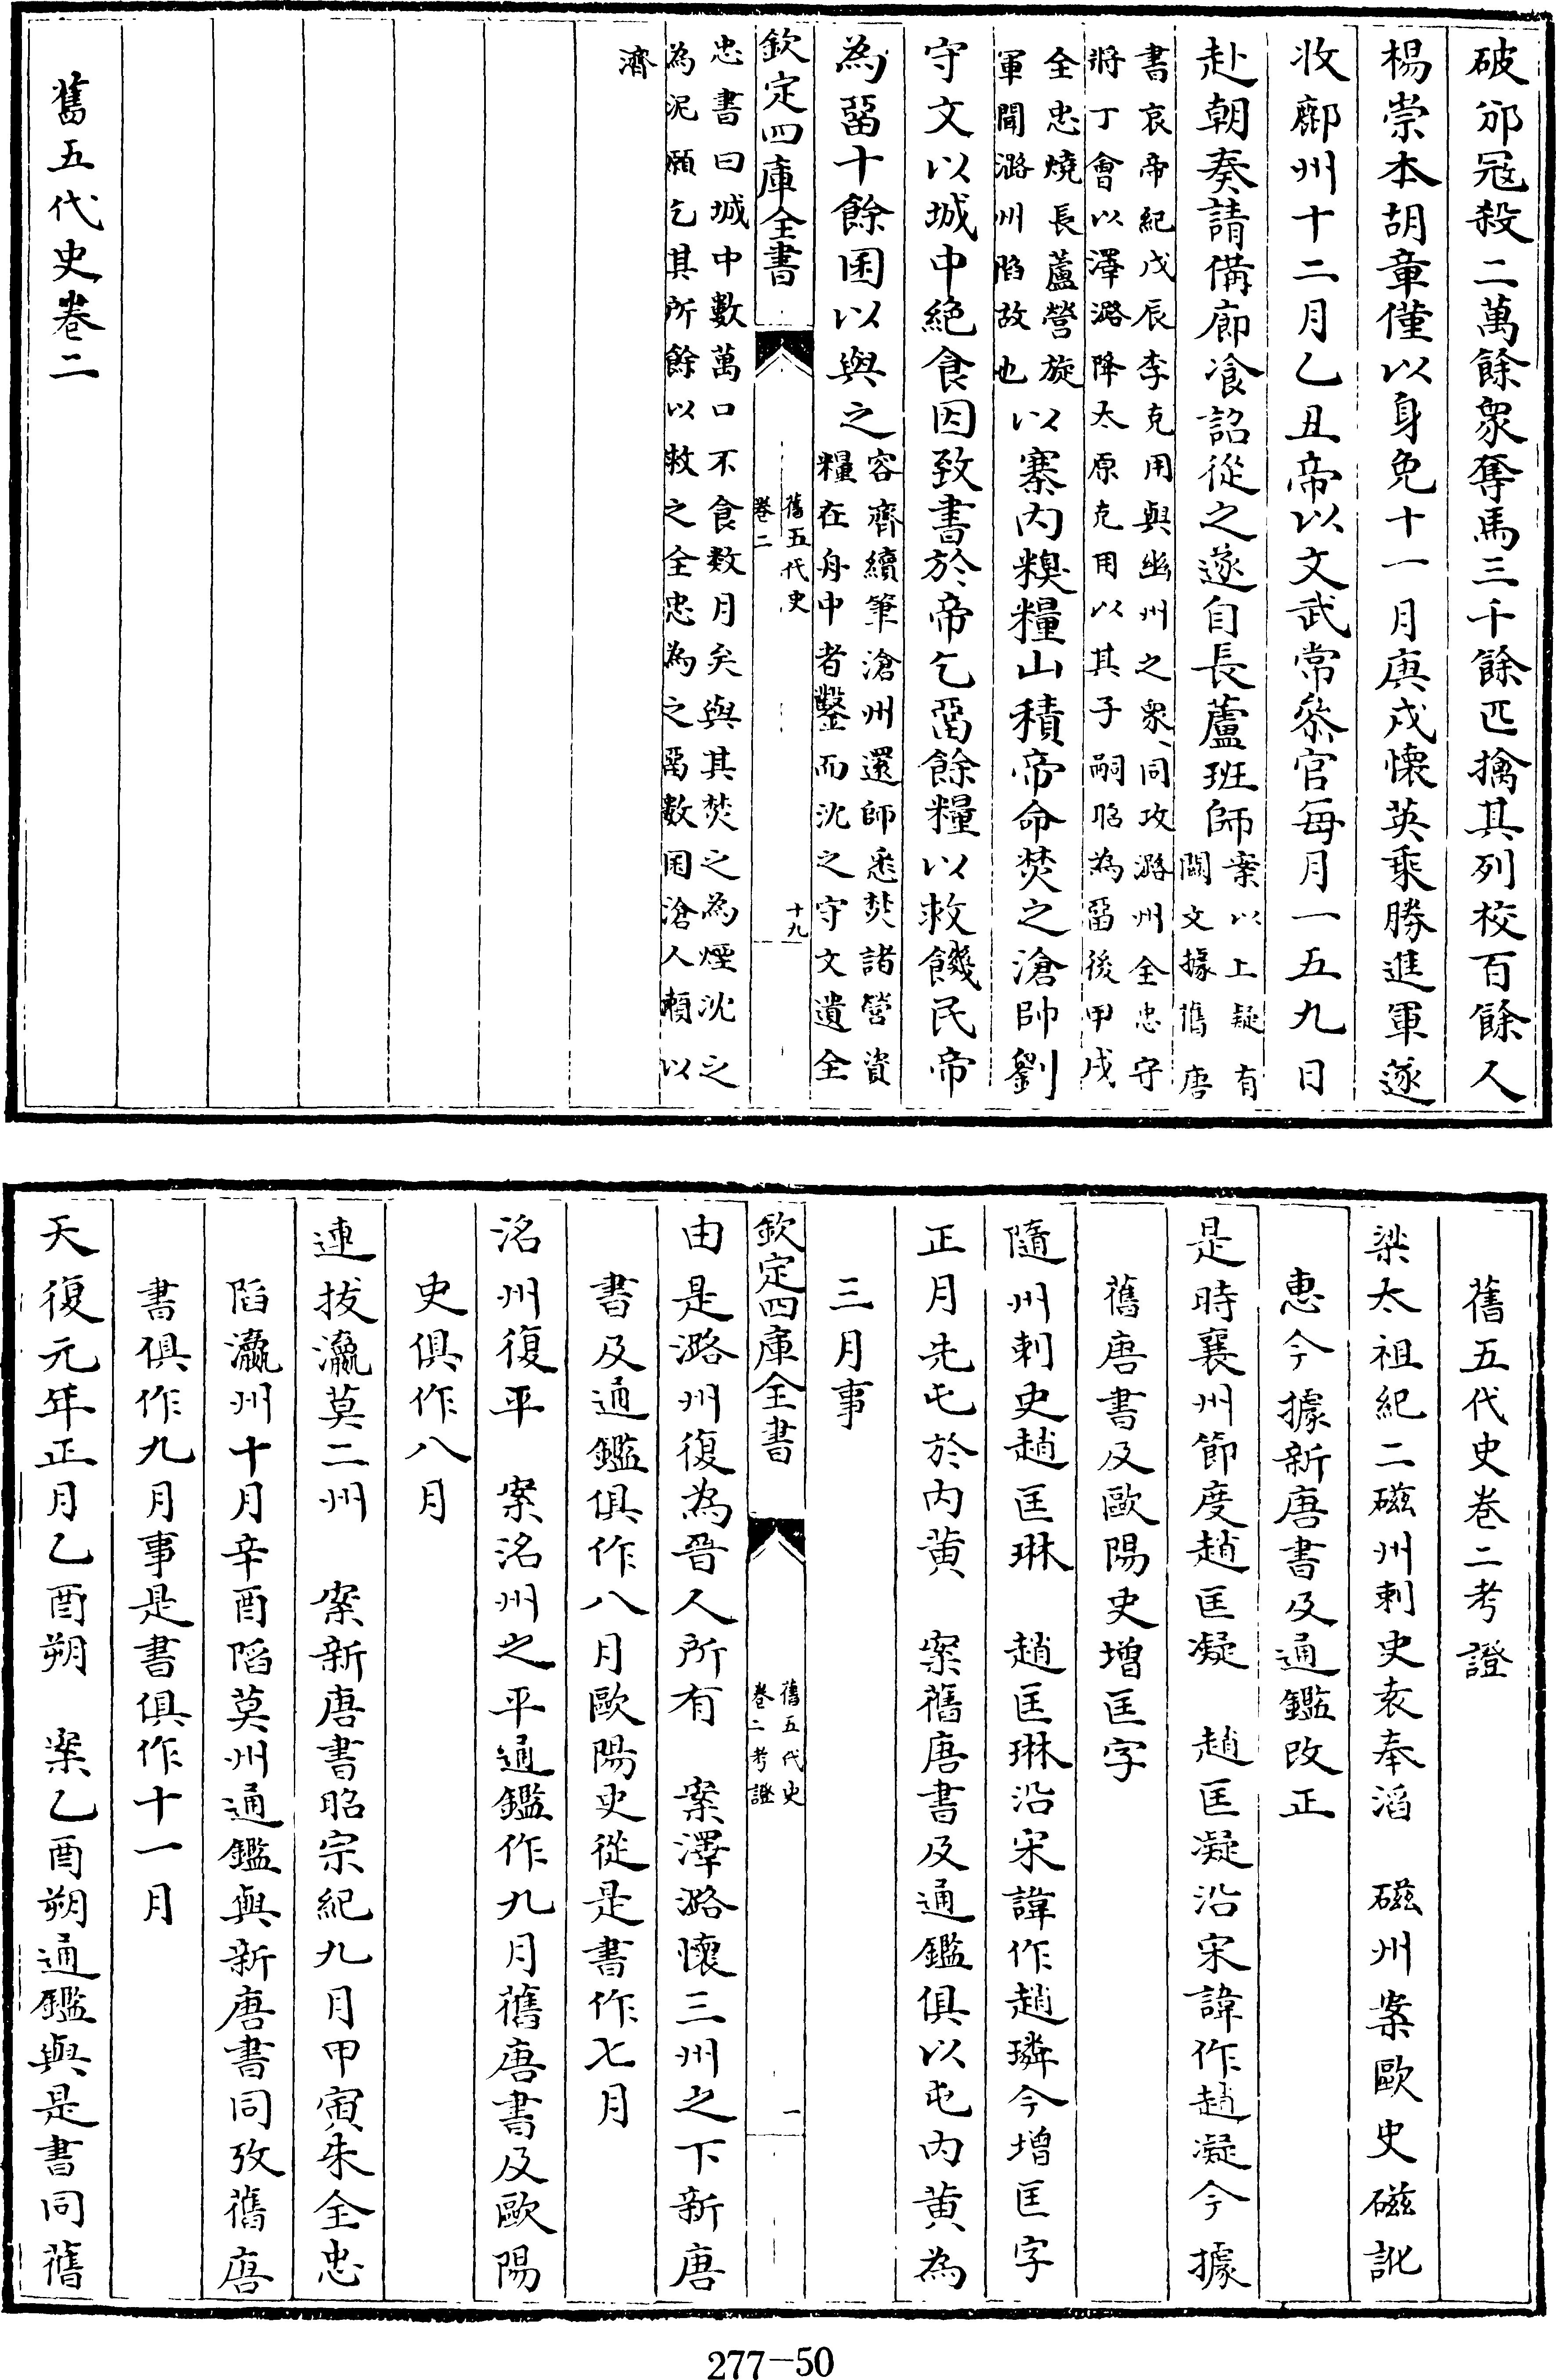 破邠冦殺二萬餘衆奪馬三千餘匹擒其列校百餘人
楊崇本胡章僅以身免十一月庚戌懷英乘勝進軍遂
收鄜州十二月乙丑帝以文武常叅官每月一五九日
赴朝奏請備廊飡詔從之遂自長蘆班師案以上疑有
闕文據舊唐
書哀帝紀戊辰李克用與幽州之衆同攻潞州全忠守
將丁會以澤潞降太原克用以其子嗣昭為畱後甲戌
全忠燒長蘆營旋
軍聞潞州陷故也以寨內糗糧山積帝命焚之滄帥劉
守文以城中絶食因致書於帝乞畱餘糧以救饑民帝
為畱十餘囷以與之容齊續筆滄州還師悉焚諸營資
糧在舟中者鑿而沈之守文遺全
欽定四庫全書
舊五代史
卷二
十九
忠書曰城中數萬口不食数月矣與其焚之為煙沈之
為泥願乞其所餘以救之全忠為之畱數囷滄人賴以
濟
舊五代史卷二
舊五代史卷二考證
梁太祖紀二磁州刺史袁奉滔　磁州案歐史磁訛
惠今據新唐書及通鑑改正
是時襄州節度趙匡凝　趙匡凝沿宋諱作趙凝今據
舊唐書及歐陽史增匡字
隨州刺史趙匡琳　趙匡琳沿宋諱作趙璘今增匡字
正月先屯於内黄　案舊唐書及通鑑俱以屯内黄為
三月事
欽定四庫全書
舊五代史
卷二考證
一
由是潞州復為晉人所有　案澤潞懷三州之下新唐
書及通鑑俱作八月歐陽史從是書作七月
洺州復平　案洺州之平通鑑作九月舊唐書及歐陽
史俱作八月
連拔瀛莫二州　案新唐書昭宗紀九月甲寅朱全忠
陷瀛州十月辛酉陷莫州通鑑與新唐書同攷舊唐
書俱作九月事是書俱作十一月
天復元年正月乙酉朔　案乙酉朔通鑑與是書同舊
277-50